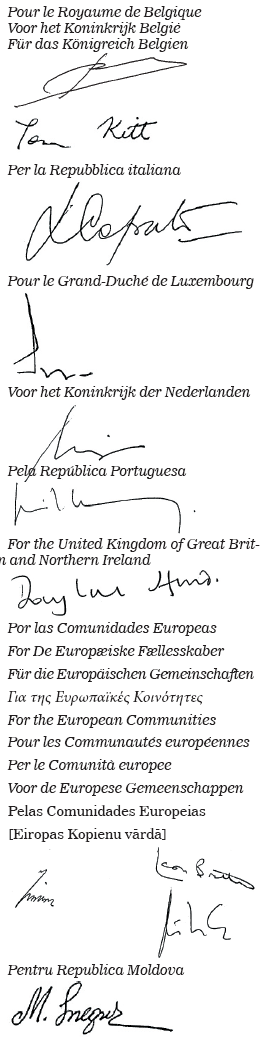 Pour le Royaume de Belgique
Voor het Koninkrijk België
Für das Königreich Belgien
Tom Kitt
Per la Repubblica italiana
Pour le Grand-Duché de Luxembourg
Voor het Koninkrijk der Nederlanden
Pela República Portuguesa
For the United Kingdom of Great Brit-
n and Northern Ireland
Douglas Hurd.
Por las Comunidades Europeas
For De Europæiske Fællesskaber
Für die Europäischen Gemeinschaften
Για της Ευρωπαϊκές Κοινότητες
For the European Communities
Pour les Communautés européennes
Per le Comunità europee
Voor de Europese Gemeenschappen
Pelas Comunidades Europeias
[Eiropas Kopienu vārdā]
Leon Brittan
Pentru Republica Moldova
M. Snegur